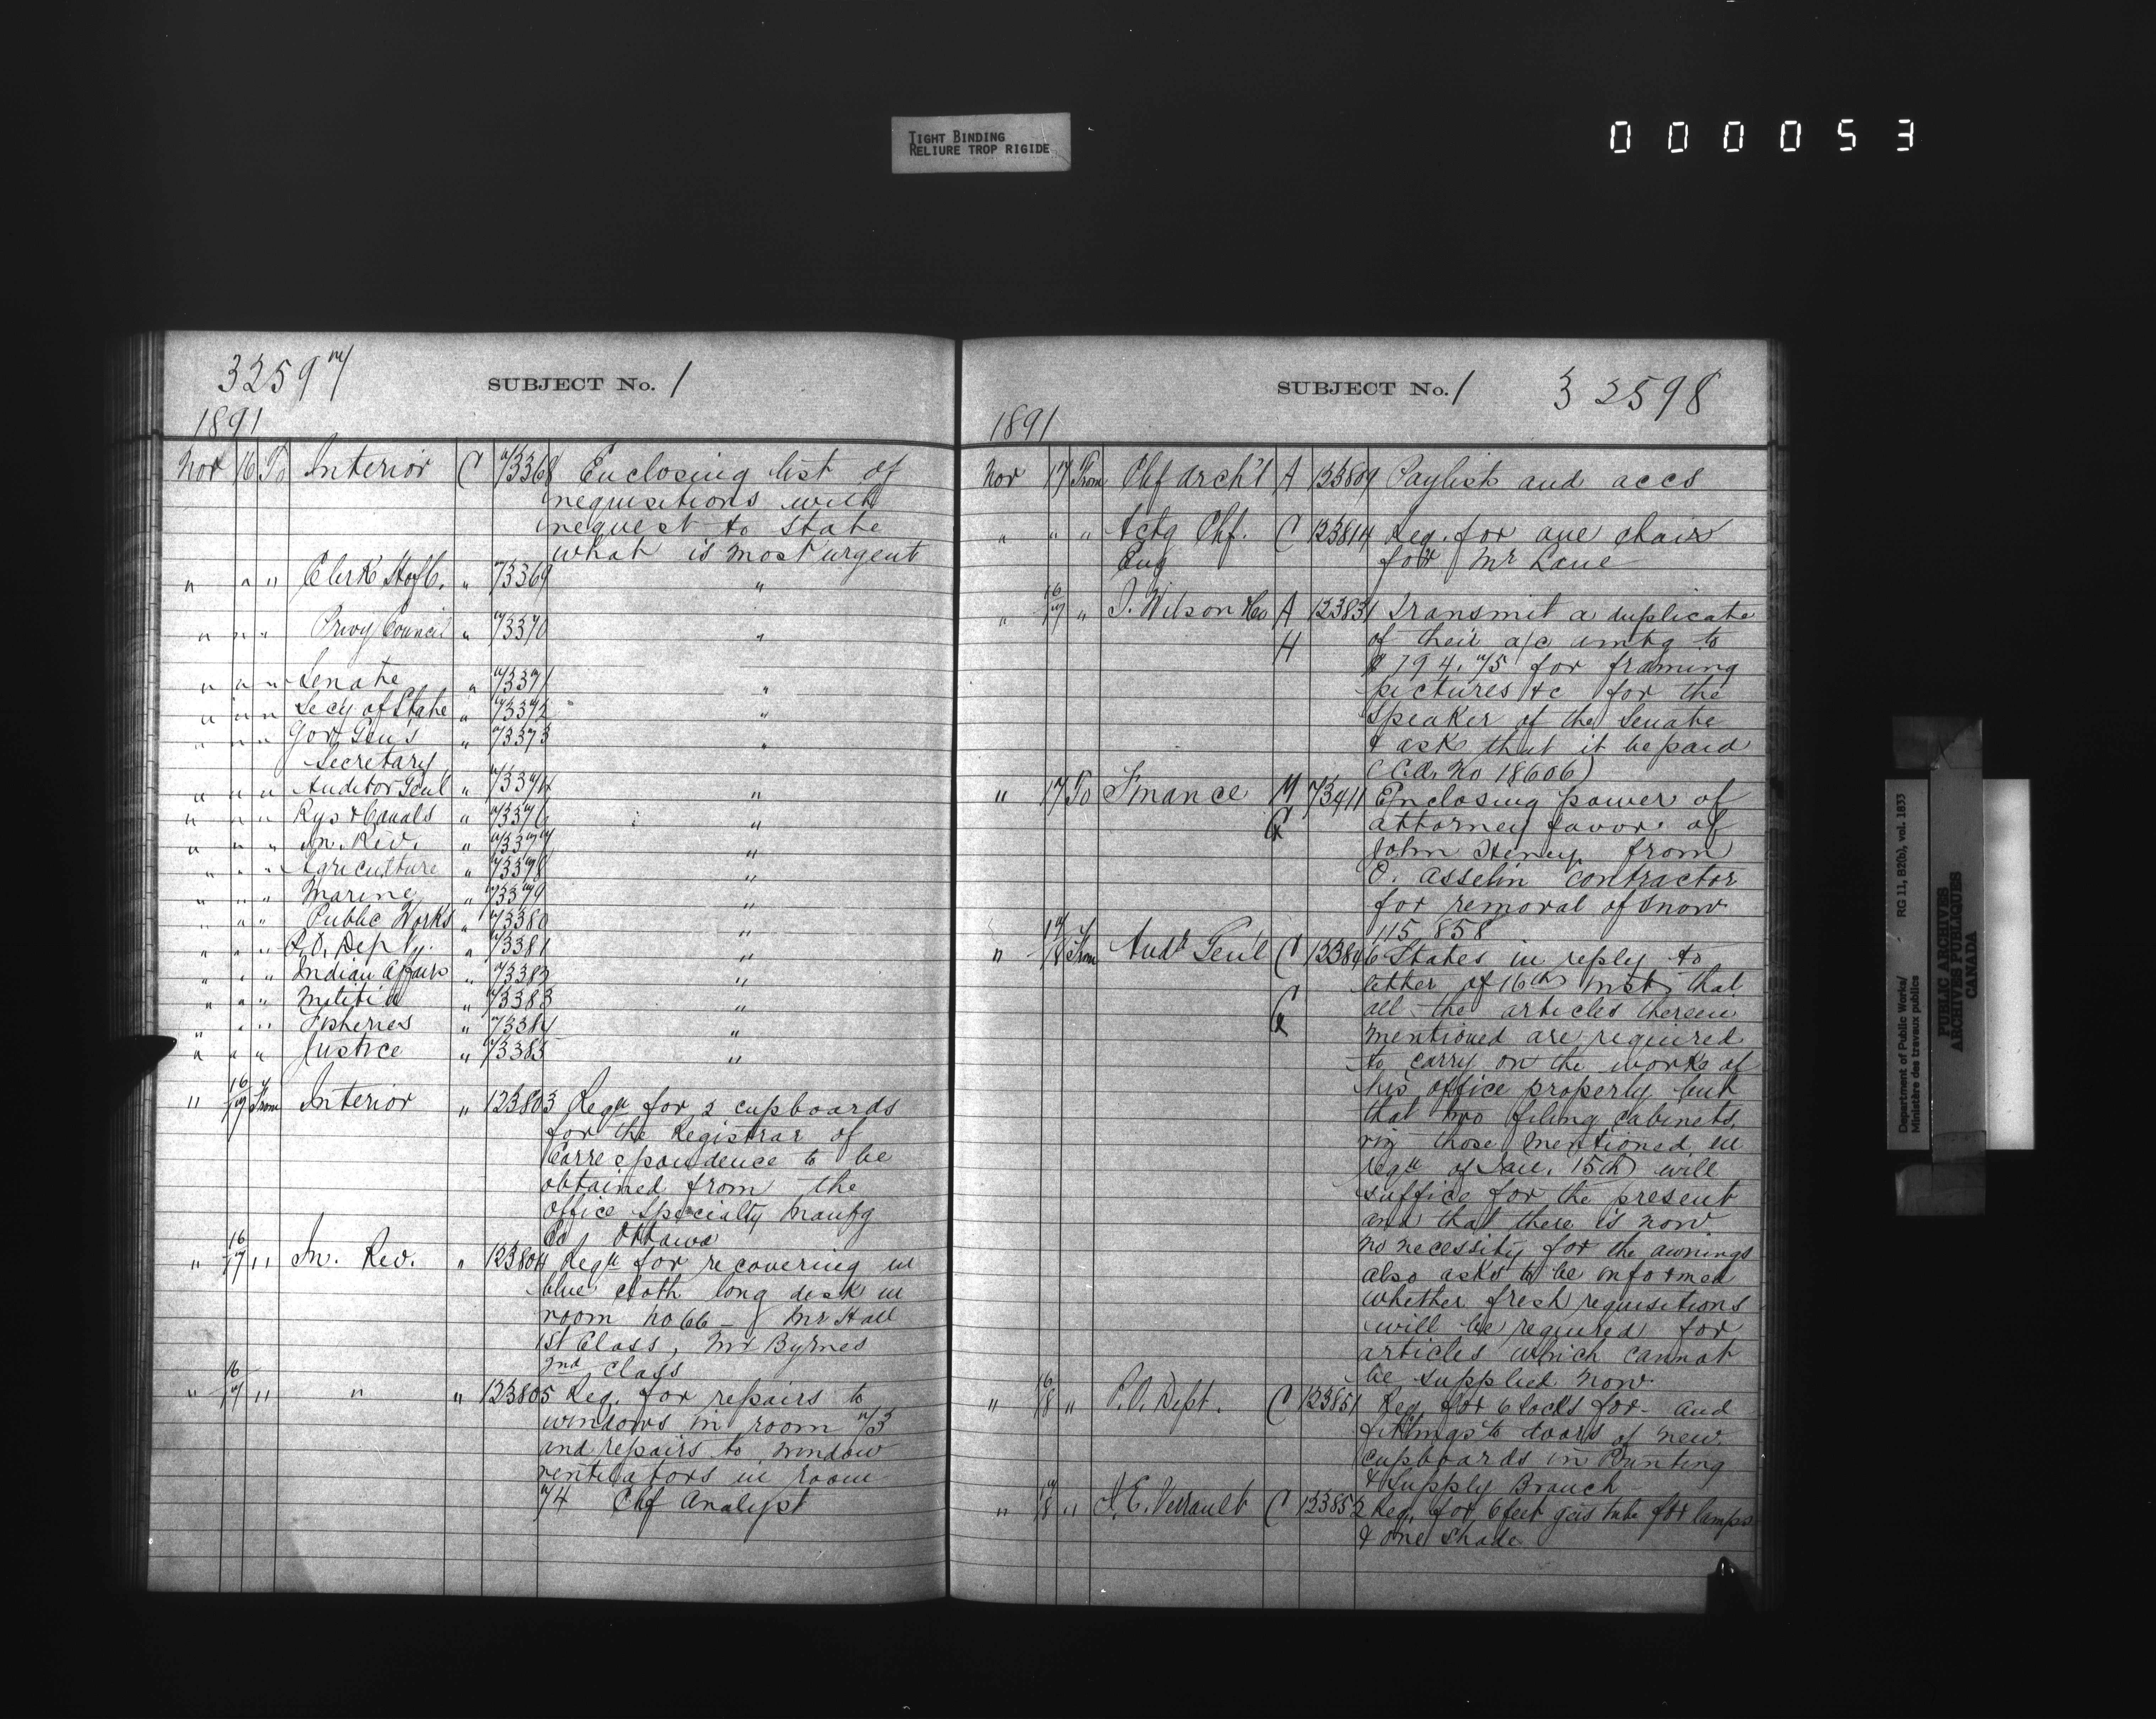 TIGHT BINDING
RELIURE TROP RIGIDE
000053
32597
SUBJECT No. 1
1891
Nov 16 To Interior C 73368 Enclosing list of
requisitions with
request to state
what is most urgent
" " " Clerk H of C. " 73369 "
" " " Privy Council " 73370 "
" " " Senate " 73371 "
" " " Secy of State " 73372 "
" " " Gov Gen's " 73373 "
Secretary
" " " Auditor Genl " 73374 "
" " " Rys & Canals " 73376 "
" " " In. Rev. " 73377 "
" " " Agriculture " 73378 "
" " " Marine " 73379 "
" " " Public Works " 73380 "
" " " P.O. Dep " 73381 "
" " " Indian Affairs " 73382 "
" " " Militia " 73383 "
" " " Fisheries " 73384 "
" " " Justice " 73385 "
" 16/17 From Interior " 123803 Reqn for 2 cupboards
for the Registrar of
Correspondence to be
obtained from the
Office Specialty Manfg
Co Ottawa
" 16/17 " In. Rev. " 123804 Reqn for recovering in
blue cloth long desk in
room no 66 - Mr Hall
1st Class, Mr Byrnes
2nd class
" 16/17 " " " 123805 Req. for repairs to
windows in room 73
and repairs to window
ventilators in room
74 Chf Analyst
SUBJECT No. 1 32598
1891
Nov 17 From Chf Arch't A 123809 Paylists and accs
" " " Actg Chf. C 123814 Req. for one chair
Eng for Mr Lane
" 16/17 " J. Wilson & Co A 123831 Transmit a duplicate
H of their a/c amtg to
$794.75 for framing
pictures &c for the
Speaker of the Senate
& ask that it be paid
(C.A. No 18606)
" 17 To Finance M 73411 Enclosing power of
attorney favor of
John Heney from
O. Asselin contractor
for removal of snow
115 858
" 17/18 From Audr Gen'l C 123846 States in reply to
letter of 16th inst that
all the articles therein
mentioned are required
to carry on the works of
his office properly but
that two filing cabinets,
viz those mentioned in
reqn of Jan. 15th will
suffice for the present
and that there is now
no necessity for the awnings
also asks to be informed
whether fresh requisitions
will be required for
articles which cannot
be supplied now.
" 16/18 " P.O. Dept. C 123851 Req for 6 locks for and
fittings to doors of new
cupboards in Printing
& Supply Branch
" 17/18 " J.E. Verrault C 123852 Req. for 6 feet gas tube for lamps
& one shade
Department of Public Works/ RG 11, B2(b), vol. 1833
Ministère des travaux publics
PUBLIC ARCHIVES
ARCHIVES PUBLIQUES
CANADA